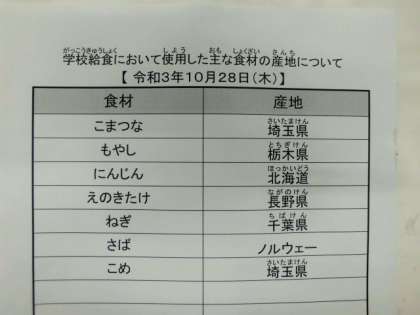 学校給食において使用した主な食材の産地について
【 令和3年10月28日(木)】
食材 産地
こまつな 埼玉県
もやし 栃木県
にんじん 北海道
えのきたけ 長野県
ねぎ 千葉県
さば ノルウェー
こめ 埼玉県